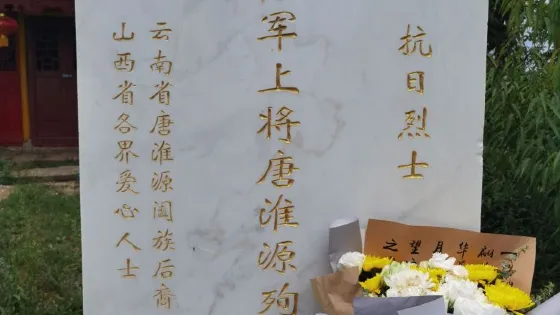 抗日烈士
军上将唐淮源殉
云南省唐淮源阖族后裔
山西省各界爱心人士